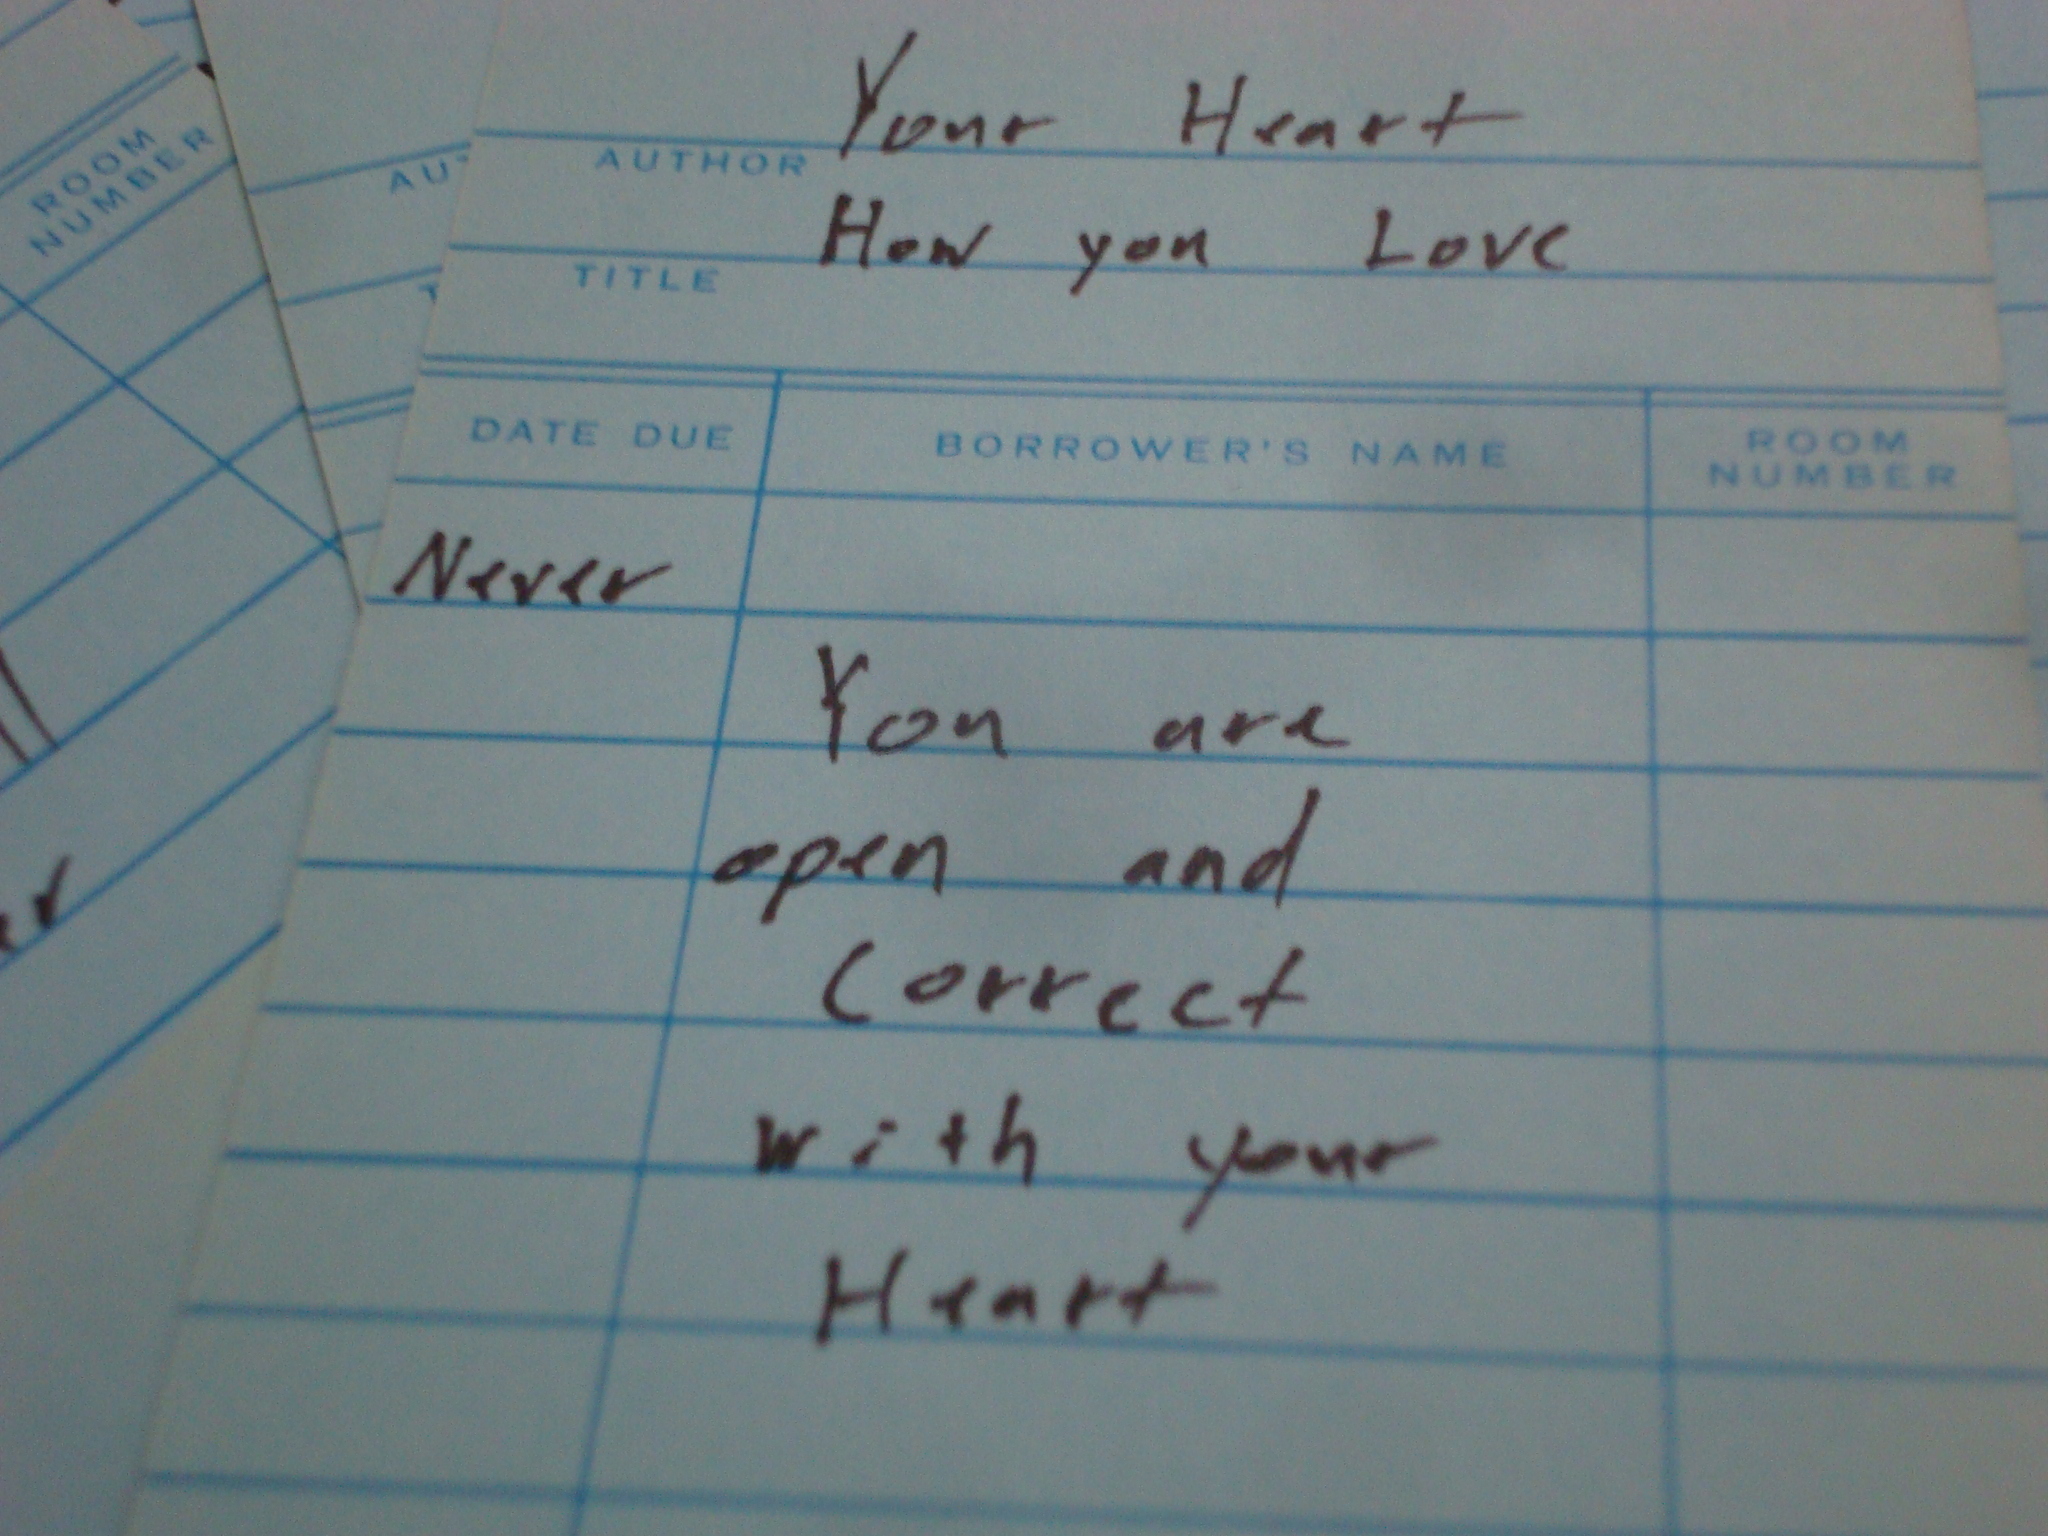 Your Heart
AUTHOR
How you Love
TITLE
DATE DUE BORROWER'S NAME ROOM NUMBER
Never
You are
open and
Correct
with your
Heart
ROOM
NUMBER